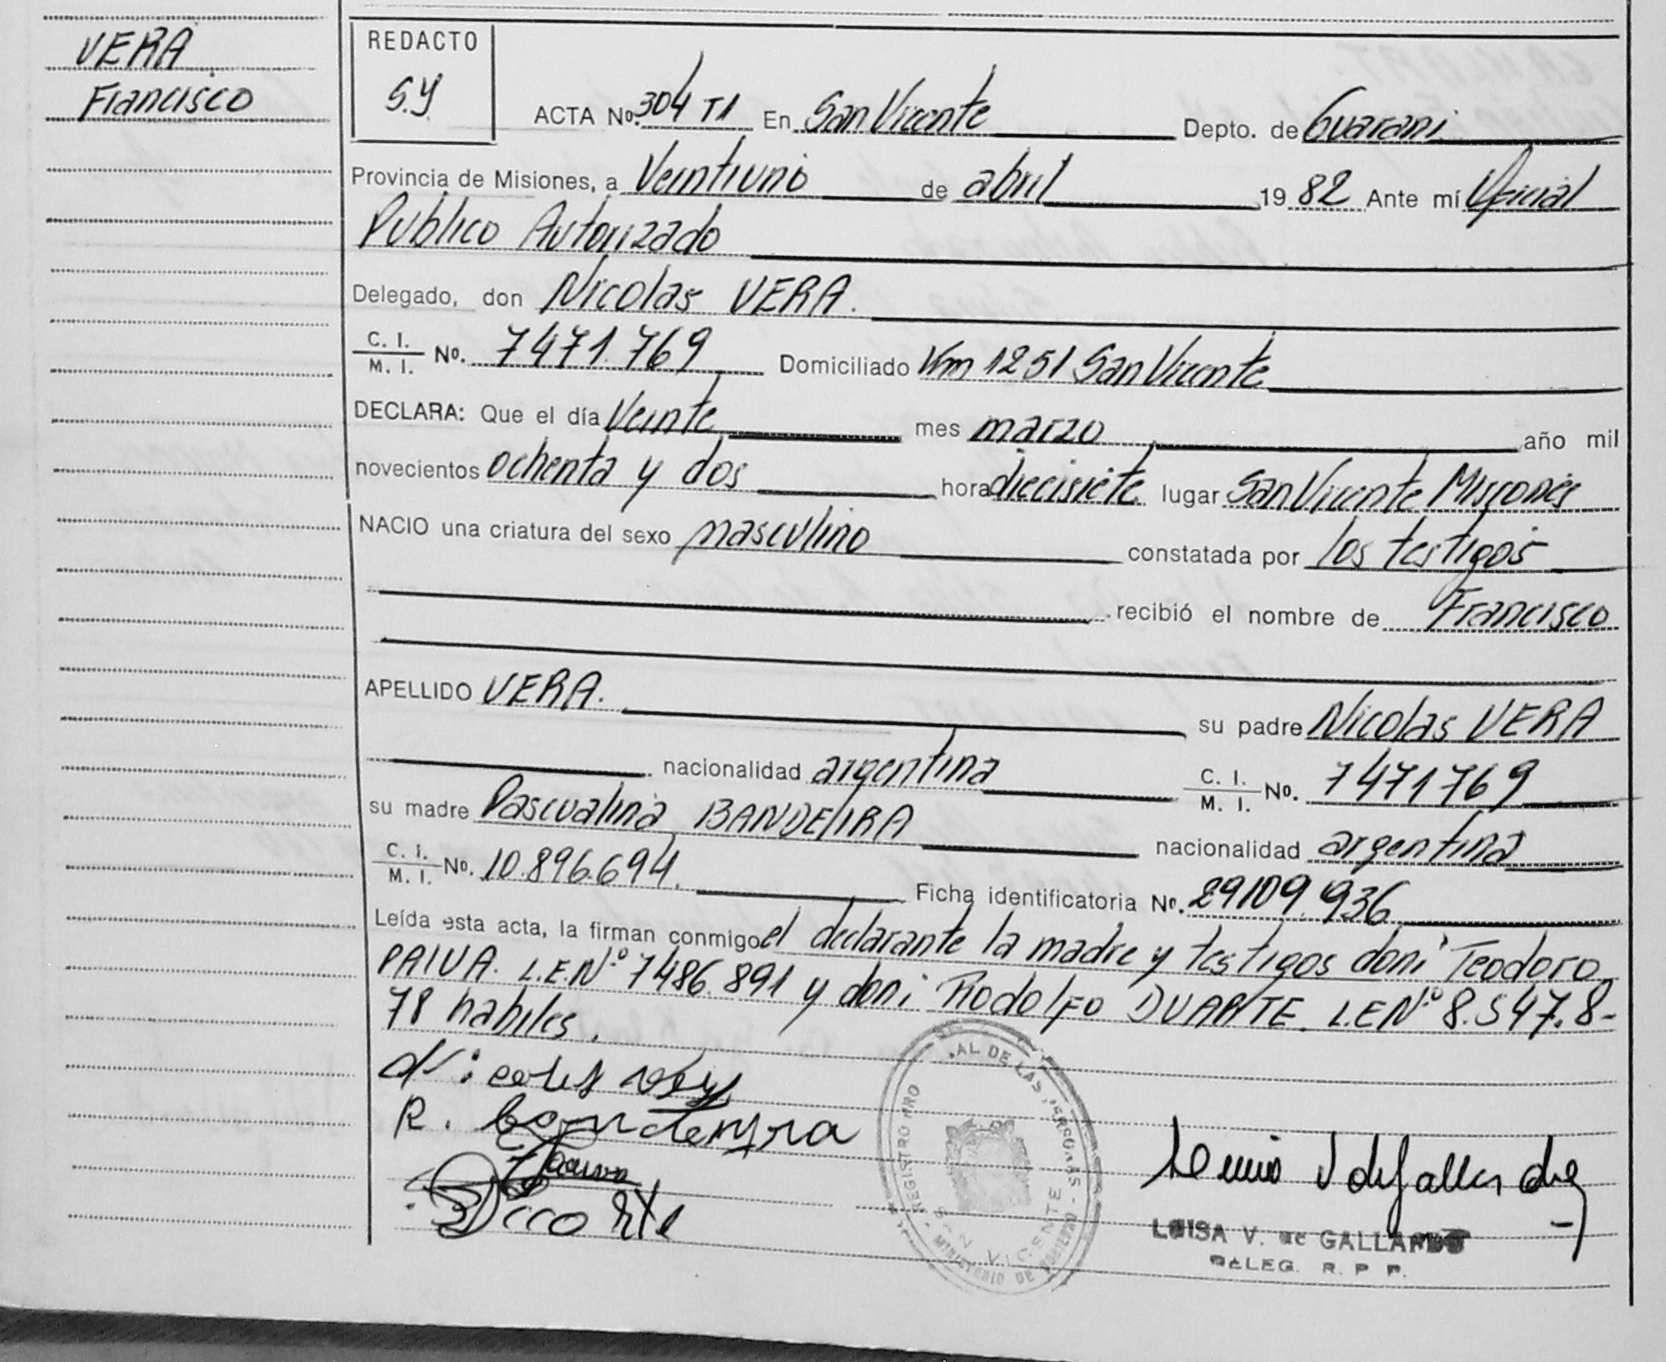 VERA
Francisco
REDACTO
S.Y
ACTA No. 304 T1 En San Vicente Depto. de Guarani
Provincia de Misiones, a Veintiuno de abril 1982 Ante mí Oficial
Publico Autorizado
Delegado, don Nicolas VERA.
C. I. / M. I. No. 7471.769 Domiciliado Km 1251 San Vicente
DECLARA: Que el día Veinte mes marzo año mil
novecientos ochenta y dos hora diecisiete lugar San Vicente Misiones
NACIO una criatura del sexo masculino constatada por los testigos
recibió el nombre de Francisco
APELLIDO VERA. su padre Nicolas VERA
nacionalidad argentina C. I. / M. I. No. 7471769
su madre Pascualina BANDEIRA nacionalidad argentina
C. I. / M. I. No. 10.896.694. Ficha identificatoria No. 29109.936
Leída esta acta, la firman conmigo el declarante la madre y testigos don: Teodoro
PAIVA. L.E.Nº 7486.891 y don: Rodolfo DUARTE. L.E.Nº 8.547.8-
78 habiles.
REGISTRO PRO AL DE LAS PERSONAS
SAN VICENTE
MINISTERIO DE GOBIERNO
LUISA V. de GALLARDO
DELEG. R. P. P.